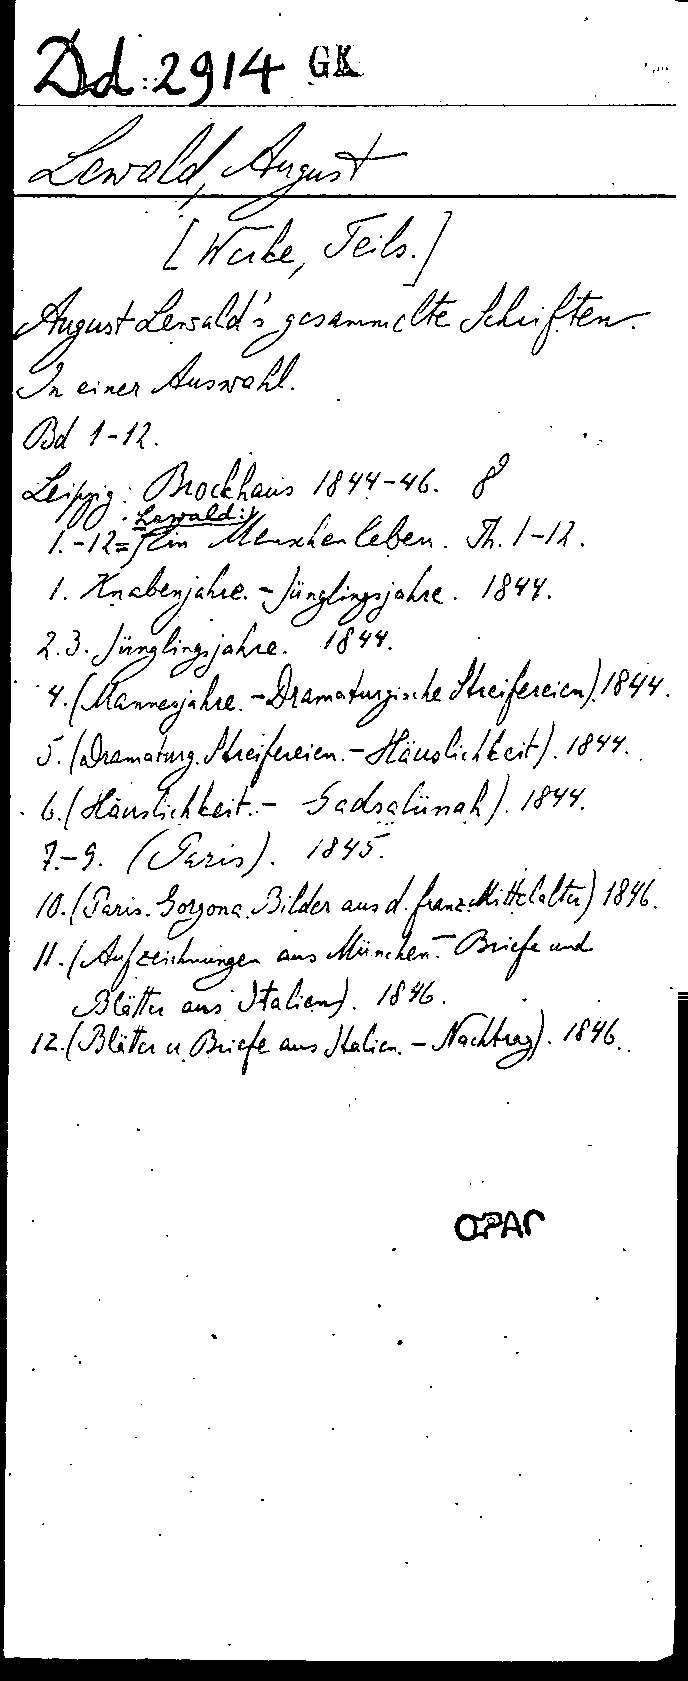 Dd:2914 GK
Lewald, August
[Werke, Teils.]
August Lewald's gesammelte Schriften.
In einer Auswahl.
Bd 1-12.
Leipzig: Brockhaus 1844-46. 8°
Lewald:
1.-12= Ein Menschenleben. Th. 1-12.
1. Knabenjahre. - Jünglingsjahre. 1844.
2.3. Jünglingsjahre. 1844.
4. (Mannesjahre. - Dramaturgische Streifereien). 1844.
5. (Dramaturg. Streifereien. - Häuslichkeit). 1844.
6. (Häuslichkeit. - Gadsalünah). 1844.
7.-9. (Paris). 1845.
10. (Paris. Gorgona. Bilder aus d. franz. Mittelalter) 1846.
11. (Aufzeichnungen aus München. - Briefe und
Blätter aus Italien). 1846.
12. (Blätter u. Briefe aus Italien. - Nachtrag). 1846.
OPAC